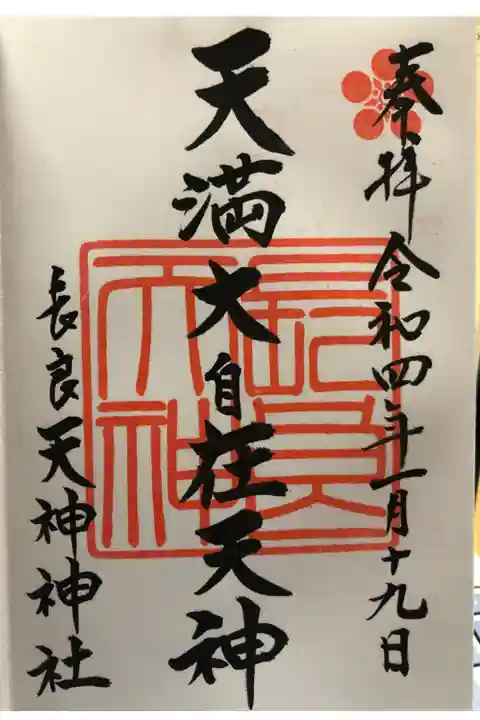 奉拝 令和四年一月十九日
天満大自在天神
長良天神神社